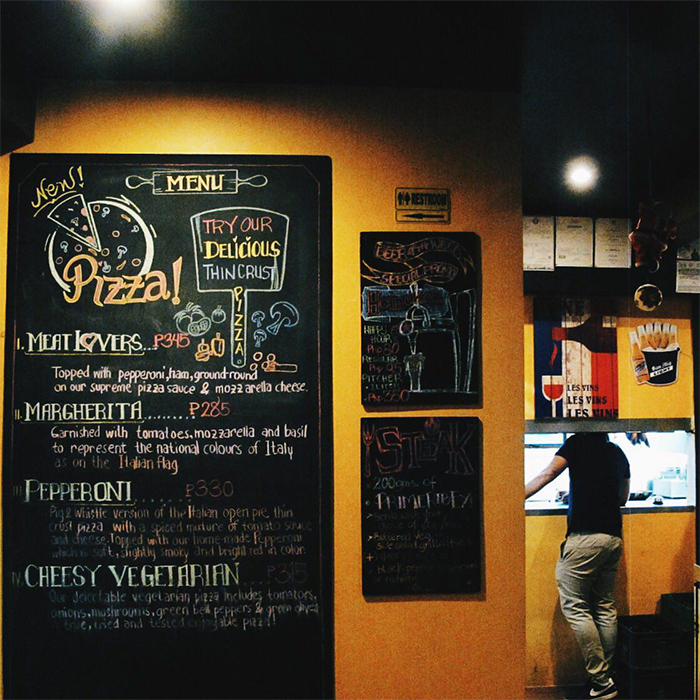 New!
MENU
Pizza!
TRY OUR
DELICIOUS
THIN CRUST
PIZZA
I. MEAT LOVERS...₱345
Topped with pepperoni, ham, ground-round
on our supreme pizza sauce & mozzarella cheese.
II. MARGHERITA.........₱285
Garnished with tomatoes, mozzarella and basil
to represent the national colours of Italy
as on the Italian flag
III. PEPPERONI.......₱330
version of the Italian open pie, thin
crust pizza with a spiced mixture of tomato sauce
and cheese. Topped with our home-made Pepperoni
which is soft, slightly smoky and bright red in color.
IV. CHEESY VEGETARIAN...₱315
Our delectable vegetarian pizza includes tomatoes,
onions, mushrooms, green bell peppers & green olives
tried and tested enjoyable pizza!
RESTROOM
HAPPY
HOUR
REGULAR
PITCHER
STEAK
200gms of
LES VINS
LES VINS
LES VINS
LIGHT